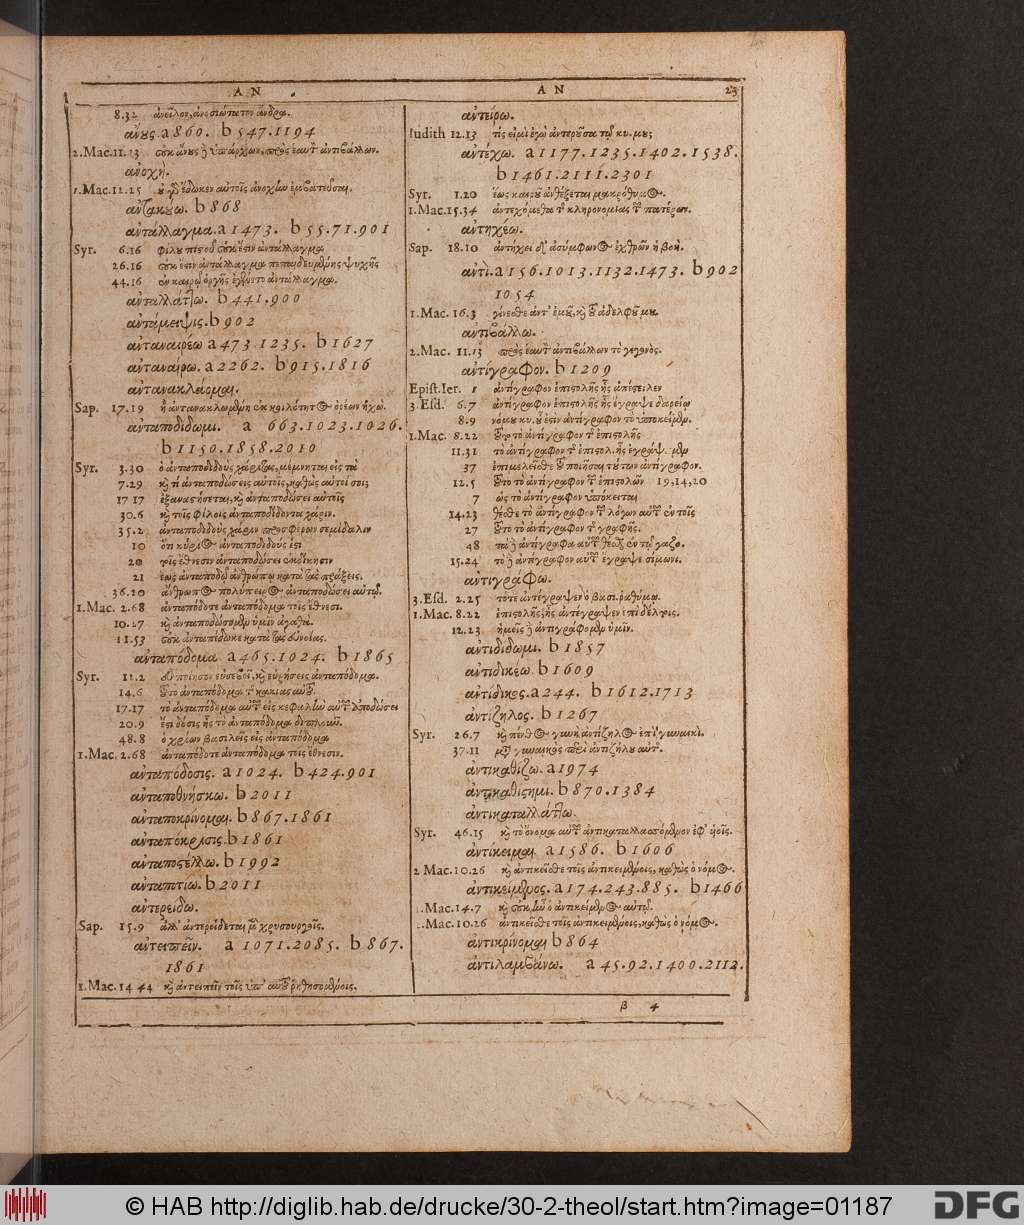 AN
8.32 ἀνεῖλον, ἀνοσιώτατον ἄνδρα.
ἄνους. a 860. b 547.1194
2.Mac.11.13 οὐκ ἄνους ὑπάρχων, πρὸς ἑαυτὸν ἀντιβάλλων.
ἀνοχή.
1.Mac.12.25 οὐ γὰρ ἔδωκεν αὐτοῖς ἀνοχὴν ἐμβατεῦσαι.
ἀντακούω. b 868
ἀντάλλαγμα. a 1473. b 55.71.901
Syr. 6.16 φίλου πιστοῦ οὐκ ἔστιν ἀντάλλαγμα
26.16 οὐκ ἔστιν ἀντάλλαγμα πεπαιδευμένης ψυχῆς
44.16 ἐν καιρῷ ὀργῆς ἐγένετο ἀντάλλαγμα.
ἀνταλλάττω. b 441.900
ἀντάμειψις. b 902
ἀνταναιρέω a 473 1235. b 1627
ἀνταναίρω. a 2262. b 915.1816
ἀντανακλάομαι.
Sap. 17.19 ἢ ἀντανακλωμένη ἐκ κοιλότητος ὀρέων ἠχώ.
ἀνταποδίδωμι. a 663.1023.1026.
b 1150.1858.2010
Syr. 3.30 ὁ ἀνταποδιδοὺς χάριτας, μέμνηται εἰς τὰ
7.29 καὶ τί ἀνταποδώσεις αὐτοῖς, καθὼς αὐτοί σοι;
17 17 ἐξαναστήσεται, καὶ ἀνταποδώσει αὐτοῖς
30.6 καὶ τοῖς φίλοις ἀνταποδιδόντα χάριν.
35.2 ἀνταποδιδοὺς χάριν προσφέρων σεμίδαλιν
10 ὅτι κύριος ἀνταποδιδούς ἐστι
20 τοῖς ἔθνεσιν ἀνταποδώσει ἐκδίκησιν
21 ἕως ἀνταποδῷ ἀνθρώπῳ κατὰ τὰς πράξεις.
36.20 ἄνθρωπος πολύπειρος ἀνταποδώσει αὐτῷ.
1.Mac. 2.68 ἀνταπόδοτε ἀνταπόδομα τοῖς ἔθνεσι.
10.27 καὶ ἀνταποδώσομεν ὑμῖν ἀγαθά.
11.53 οὐκ ἀνταπέδωκε κατὰ τὰς εὐνοίας.
ἀνταπόδομα a 465.1024. b 1865
Syr. 12.2 εὖ ποίησον εὐσεβεῖ, καὶ εὑρήσεις ἀνταπόδομα.
14.6 τοῦτο ἀνταπόδομα τῆς κακίας αὐτοῦ.
17.17 τὸ ἀνταπόδομα αὐτῶν εἰς κεφαλὴν αὐτῶν ἀποδώσει
20.9 ἔστι δόσις ἧς τὸ ἀνταπόδομα διπλοῦν.
48.8 ὁ χρίων βασιλεῖς εἰς ἀνταπόδομα
1.Mac. 2.68 ἀνταπόδοτε ἀνταπόδομα τοῖς ἔθνεσιν.
ἀνταπόδοσις. a 1024. b 424.901
ἀνταποθνήσκω. b 2011
ἀνταποκρίνομαι. b 867.1861
ἀνταπόκρισις. b 1861
ἀνταποστέλλω. b 1992
ἀνταποτίω. b 2011
ἀντερείδω.
Sap. 15.9 ἀλλ' ἀντερείδεται μὲν χρυσουργοῖς.
ἀντειπεῖν. a 1071.2085. b 867.
1861
1.Mac. 14 44 καὶ ἀντειπεῖν τοῖς ὑπ' αὐτοῦ ῥηθησομένοις.
AN 23
ἀντείρω.
Iudith 12.13 τίς εἰμὶ ἐγὼ ἀντεροῦσα τῷ κυ.μου;
ἀντέχω. a 1177.1235.1402.1538.
b 1461.2111.2301
Syr. 1.20 ἕως καιροῦ ἀνθέξεται μακρόθυμος.
1.Mac.15.34 ἀντεχόμεθα τῆς κληρονομίας τῶν πατέρων.
ἀντηχέω.
Sap. 18.10 ἀντήχει δ' ἀσύμφωνος ἐχθρῶν ἡ βοή.
ἀντί. a 156.1013.1132.1473. b 902
1054
1.Mac. 16.3 γίνεσθε ἀντ' ἐμοῦ, καὶ τοῦ ἀδελφοῦ μου.
ἀντιβάλλω.
2.Mac. 11.13 πρὸς ἑαυτὸν ἀντιβάλλων τὸ γεγονός.
ἀντίγραφον. b 1209
Epist.Ier. 1 ἀντίγραφον ἐπιστολῆς ἧς ἀπέστειλεν
3.Esd. 6.7 ἀντίγραφον ἐπιστολῆς ἧς ἔγραψε δαρείῳ
8.9 νόμου κυ. οὗ ἐστὶν ἀντίγραφον τὸ ὑποκείμενον
1.Mac. 8.22 τοῦτο τὸ ἀντίγραφον τῆς ἐπιστολῆς
11.31 τὸ ἀντίγραφον τῆς ἐπιστολῆς ἧς ἐγράψαμεν
37 ἐπιμελεῖσθε τοῦ ποιῆσαι τούτων ἀντίγραφον.
12.5 τοῦτο τὸ ἀντίγραφον τῶν ἐπιστολῶν 19,14,20
7 ὡς τὸ ἀντίγραφον ὑπόκειται
14.23 θέσθε τὸ ἀντίγραφον τῶν λόγων αὐτῶν ἐν τοῖς
27 τοῦτο τὸ ἀντίγραφον τῆς γραφῆς.
48 τὰ δὲ ἀντίγραφα αὐτῶν θέσθαι ἐν τῷ γαζο.
15.24 τὸ δὲ ἀντίγραφον αὐτῶν ἔγραψε σίμωνι.
ἀντιγράφω.
3.Esd. 2.25 τότε ἀντέγραψεν ὁ βασι.ραθύμῳ.
1.Mac. 8.22 ἐπιστολῆς, ἧς ἀντέγραψεν ἐπὶ δέλτοις.
12.23 ἡμεῖς δὲ ἀντιγράφομεν ὑμῖν.
ἀντιδίδωμι. b 1857
ἀντιδικέω. b 1609
ἀντίδικος. a 244. b 1612.1713
ἀντίζηλος. b 1267
Syr. 26.7 καὶ πένθος γυνὴ ἀντίζηλος ἐπὶ γυναικί.
37.11 μετὰ γυναικὸς περὶ ἀντιζήλου αὐτῆς.
ἀντικαθίζω. a 1974
ἀντικαθίστημι. b 870.1384
ἀντικαταλλάττω.
Syr. 46.15 καὶ τὸ ὄνομα αὐτῶν ἀντικαταλλασσόμενον ἐφ' υἱοῖς.
ἀντίκειμαι a 1586. b 1606
2 Mac.10.26 καὶ ἀντικεῖσθαι τοῖς ἀντικειμένοις, καθὼς ὁ νόμος.
ἀντικείμενος. a 174.243.885. b 1466
1.Mac.14.7 καὶ οὐκ ἦν ὁ ἀντικείμενος αὐτῷ.
2.Mac.10.26 ἀντικεῖσθαι τοῖς ἀντικειμένοις, καθὼς ὁ νόμος.
ἀντικρίνομαι b 864
ἀντιλαμβάνω. a 45.92.1400.2112.
β 4
© HAB http://diglib.hab.de/drucke/30-2-theol/start.htm?image=01187
DFG